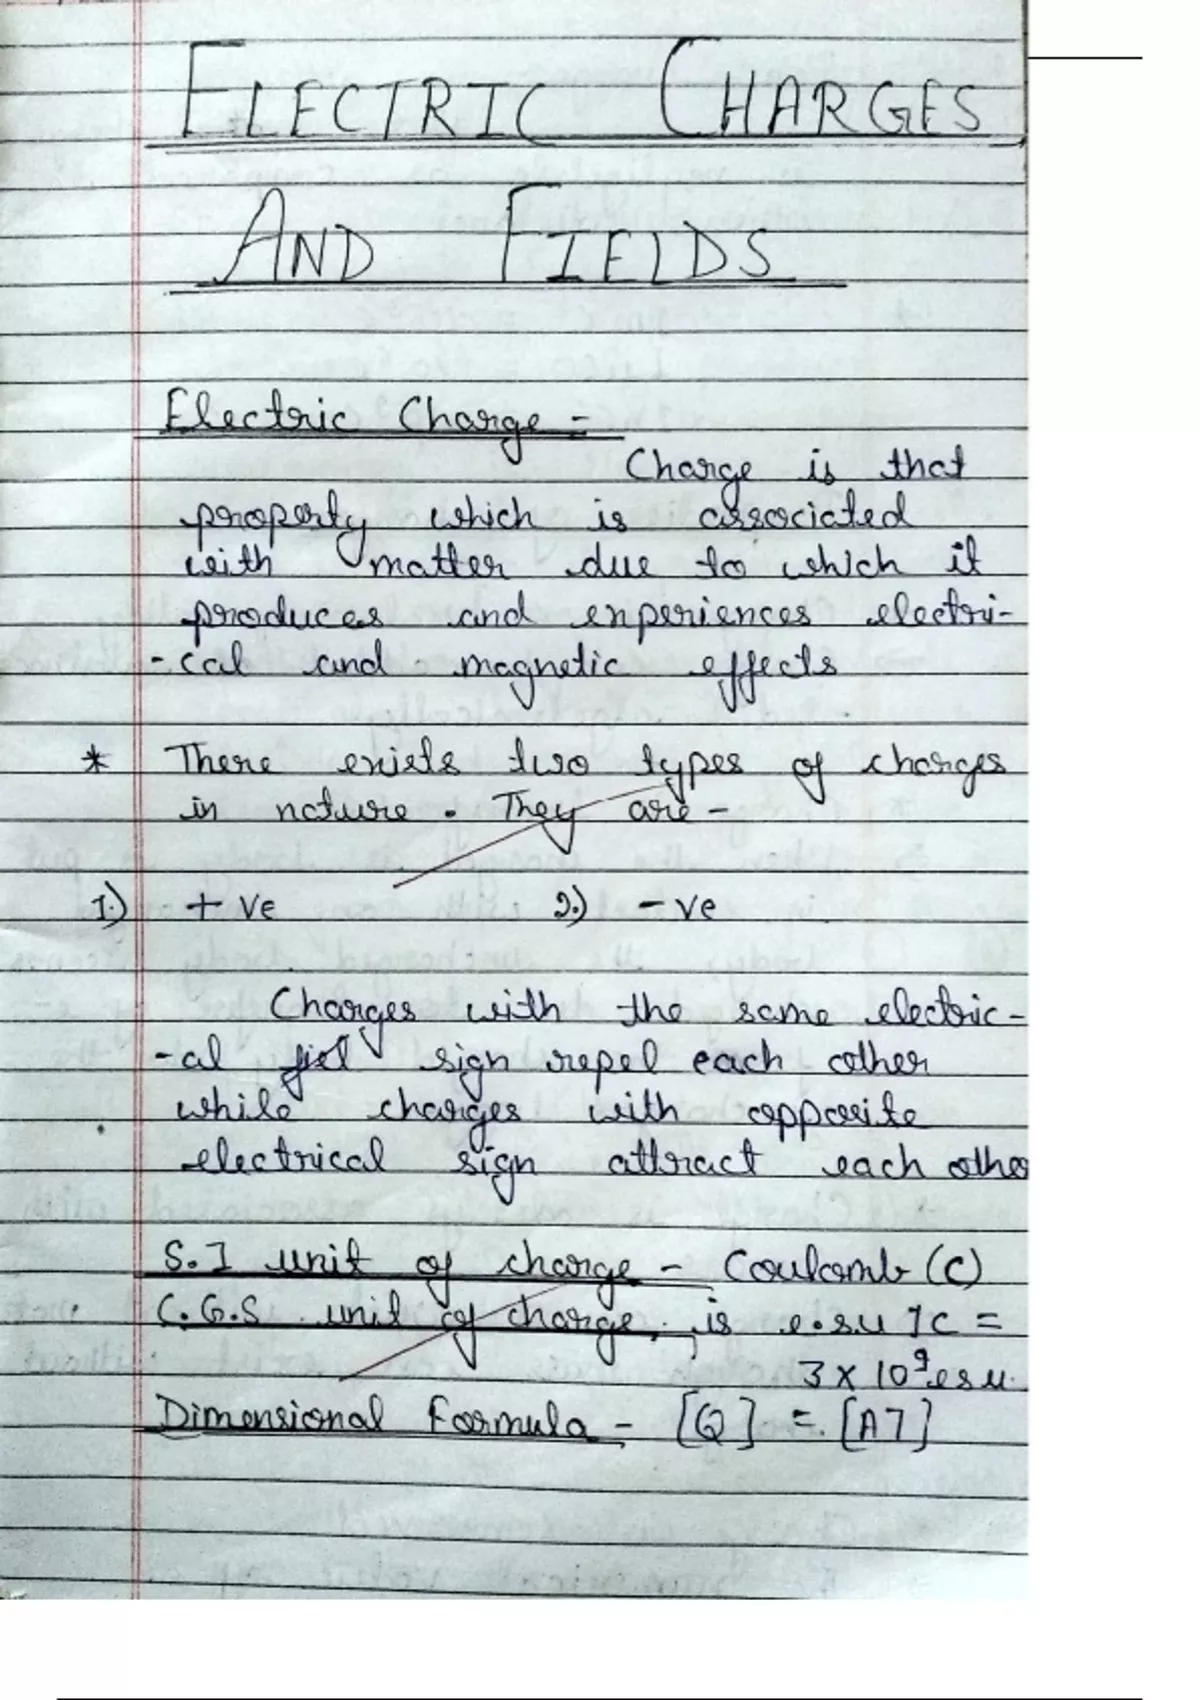 ELECTRIC CHARGES
AND FIELDS
Electric Charge =
Charge is that
property which is associated
with matter due to which it
produces and experiences electri-
-cal and magnetic effects
* There exists two types of charges
in nature. They are -
1.) + ve 2.) - ve
Charges with the same electric-
-al sign repel each other
while charges with opposite
electrical sign attract each othe
S.I unit of charge - Coulomb (C)
C.G.S. unit of charge, is e.s.u 1C =
3 x 10⁹ esu.
Dimensional Formula - [Q] = [AT]